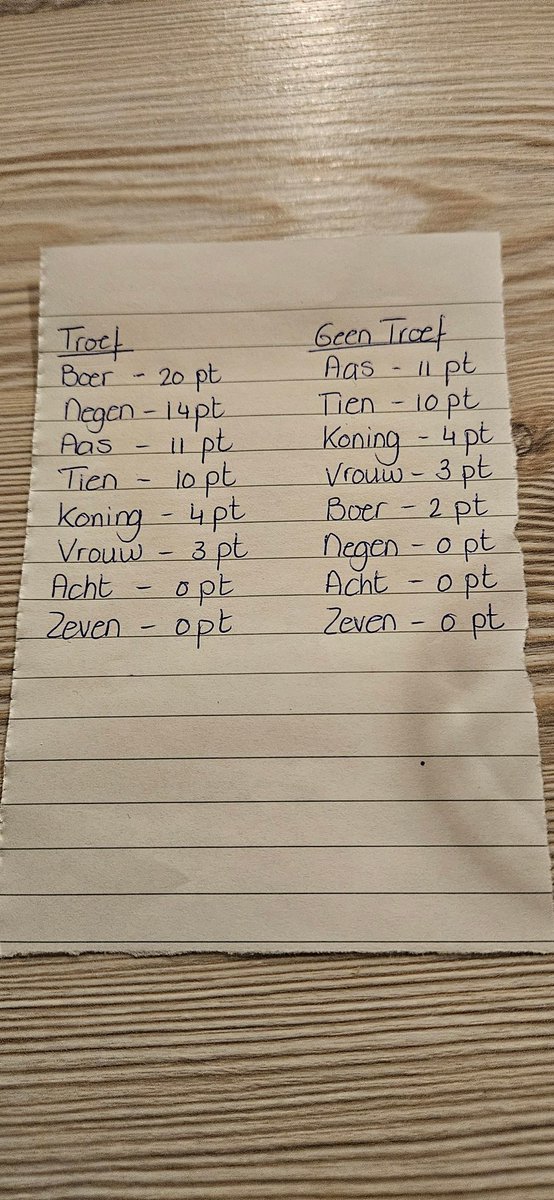 Troef
Boer - 20 pt
Negen - 14pt
Aas - 11 pt
Tien - 10 pt
Koning - 4pt
Vrouw - 3 pt
Acht - 0 pt
Zeven - 0pt
Geen Troef
Aas - 11 pt
Tien - 10 pt
Koning - 4 pt
Vrouw - 3 pt
Boer - 2 pt
Negen - 0 pt
Acht - 0 pt
Zeven - 0 pt